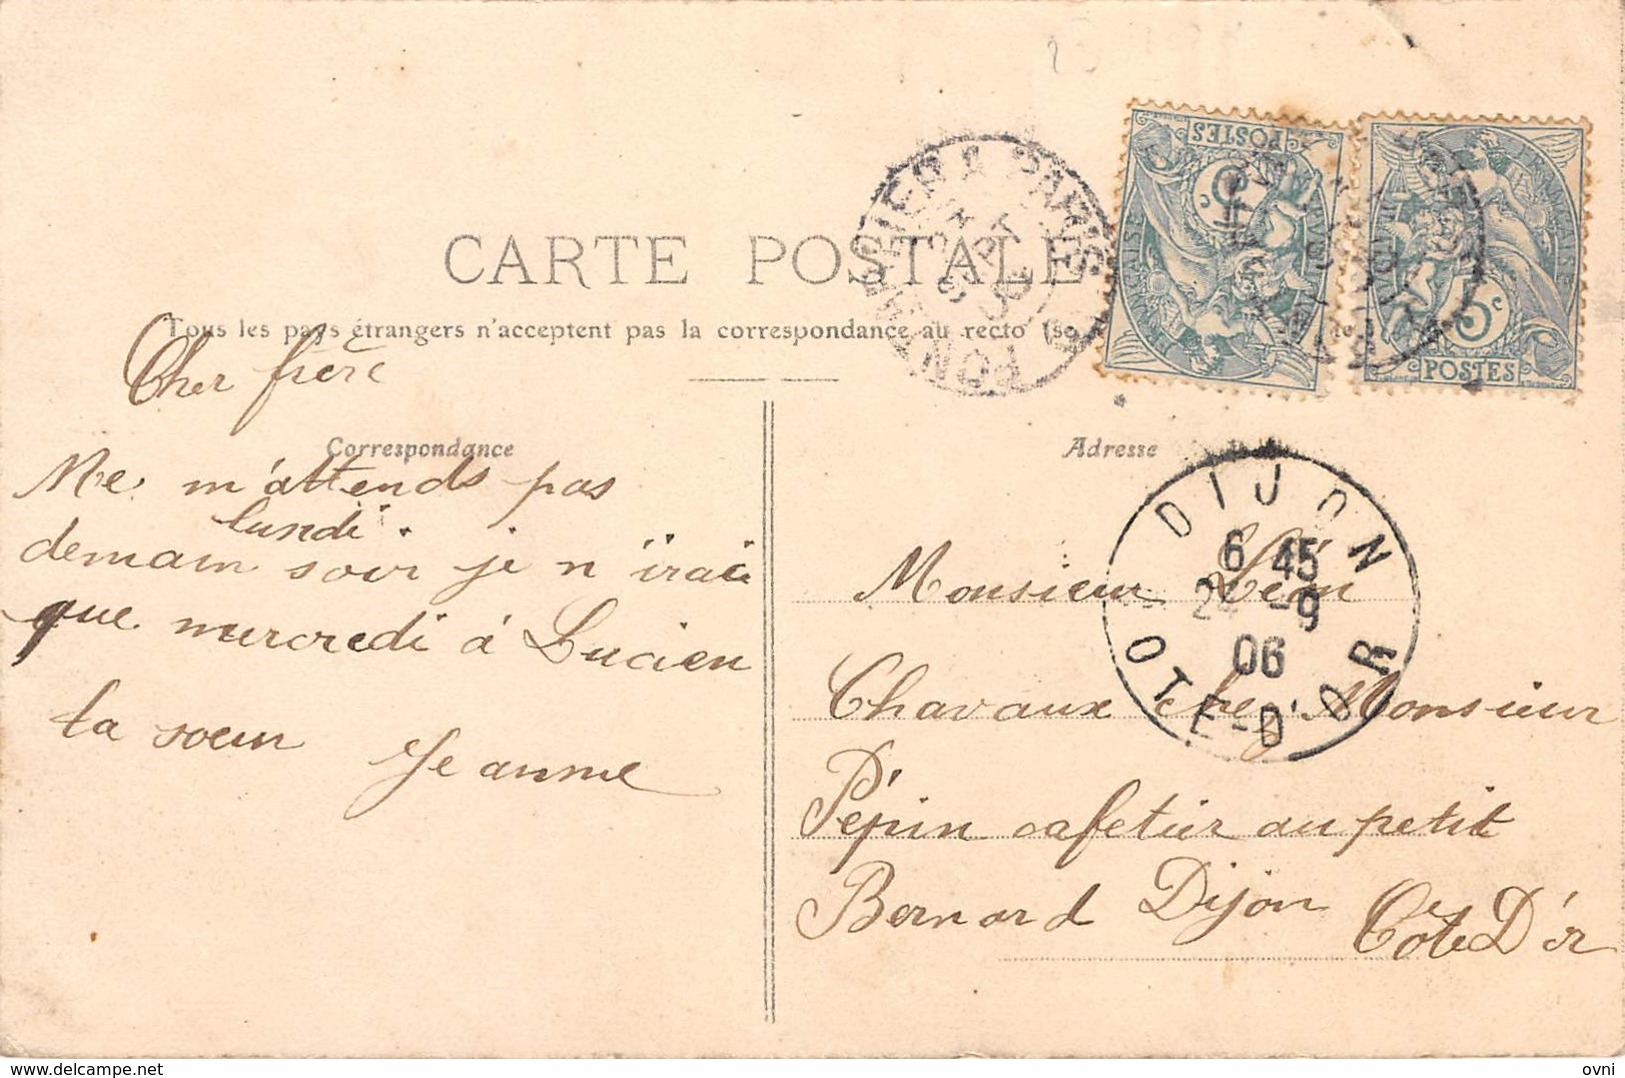 CARTE POSTALE
Tous les pays étrangers n'acceptent pas la correspondance au recto (se
Correspondance
Cher frère
Ne m'attends pas
lundi
demain soir je n'irai
que mercredi à Lucien
ta soeur Jeanne
Adresse
Monsieur Léon
Chavaux chez Monsieur
Pépin cafetier au petit
Bernard Dijon Côte D'or
POSTES
5c
POSTES
5c
PONTARLIER À PARIS
DIJON
6 45
24 -9
06
COTE-D'OR
www.delcampe.net
ovni